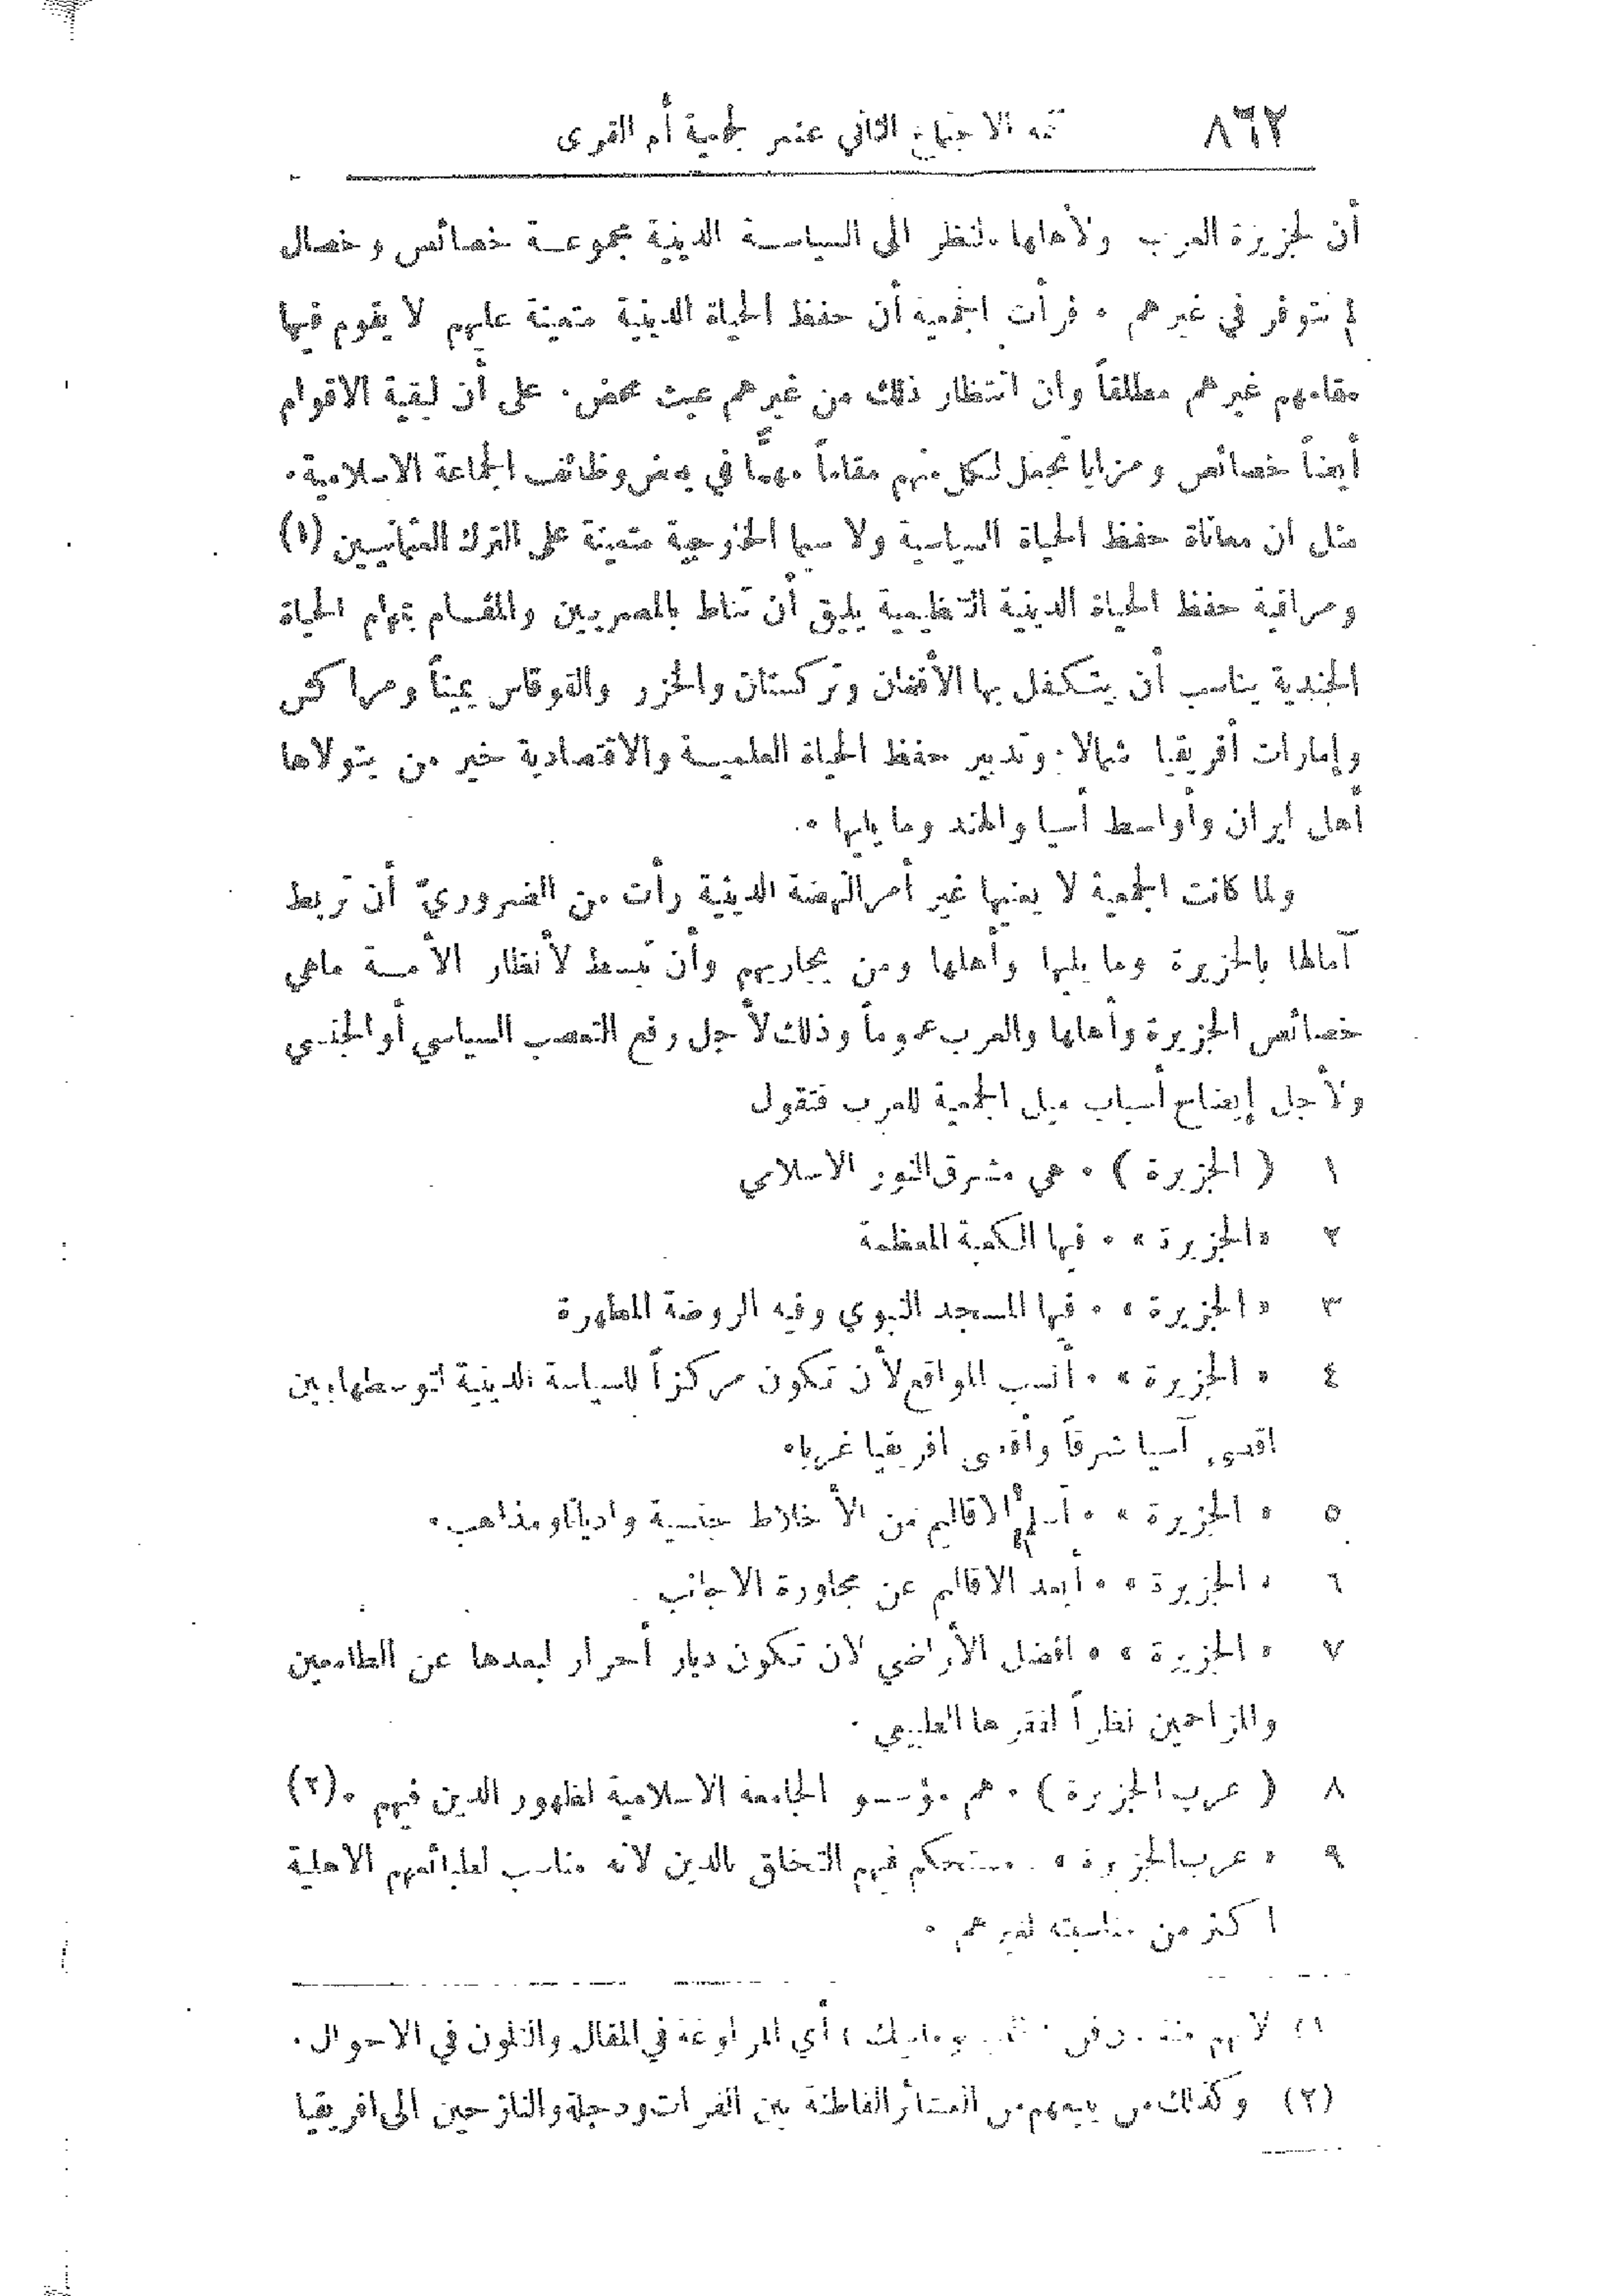 ٨٦٢ تتمة الاجتماع الثاني عشر لجمعية أم القرى
أن لجزيرة العرب ولأهلها بالنظر الى السياسة الدينية مجموعة خصائص وخصال
لم تتوفر في غيرهم ٠ فرأت الجمعية أن حفظ الحياة الدينية متعينة عليهم لا يقوم فيها
مقامهم غيرهم مطلقاً وان انتظار ذلك من غيرهم عبث محض ٠ على أن لبقية الاقوام
أيضاً خصائص ومزايا تجعل لكل منهم مقاماً مهمًّا في بعض وظائف الجماعة الاسلامية ٠
مثل ان معاناة حفظ الحياة السياسية ولا سيما الخارجية متعينة على الترك العثمانيين (١)
ومراقبة حفظ الحياة الدينية التنظيمية يليق أن تناط بالمصريين والقيام بمهام الحياة
الجندية يناسب أن يتكفل بها الأفغان وتركستان والخزر والقوقاس يميناً ومراكش
وإمارات أفريقيا شمالا ٠ وتدبير حفظ الحياة العلمية والاقتصادية خير من يتولاها
أهل ايران وأواسط أسيا والهند وما يليها ٠
ولما كانت الجمعية لا يعنيها غير أمر النهضة الدينية رأت من الضروريّ أن تربط
آمالها بالجزيرة وما يليها وأهلها ومن يجاريهم وأن تبسط لأنظار الأمة ماهي
خصائص الجزيرة وأهلها والعرب عموماً وذلك لأجل رفع التعصب السياسي أو الجنسي
ولأجل إيضاح أسباب ميل الجمعية للعرب فتقول
١ ( الجزيرة ) ٠ هي مشرق النور الاسلامي
٢ «الجزيرة » ٠ فيها الكعبة المعظمة
٣ « الجزيرة » ٠ فيها المسجد النبوي وفيه الروضة المطهرة
٤ « الجزيرة » ٠ أنسب المواقع لأن تكون مركزاً للسياسة الدينية لتوسطها بين
اقصى آسيا شرقاً وأقصى افريقيا غربا ٠
٥ « الجزيرة » ٠ أسلم الاقاليم من الأخلاط جنسية واديانا ومذاهب ٠
٦ « الجزيرة » ٠ أبعد الاقاليم عن مجاورة الاجانب
٧ « الجزيرة » ٠ افضل الأراضي لان تكون ديار أحرار لبعدها عن الطامعين
والمزاحمين نظراً لفقرها الطبيعي ٠
٨ ( عرب الجزيرة ) ٠ هم مؤسسو الجامعة الاسلامية لظهور الدين فيهم ٠ (٢)
٩ « عرب الجزيرة » ٠ مستحكم فيهم التخلق بالدين لانه مناسب لطبائعهم الاهلية
اكثر من مناسبته لغيرهم ٠
لا أي المراوغة في المقال والتلون في الاحوال ٠
(٢) وكذلك من يتبعهم من العشائر القاطنة بين الفرات ودجلة والنازحين الى افريقيا